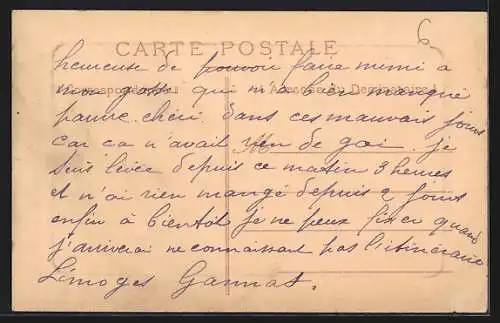 6
CARTE POSTALE
heureuse de pouvoir faire mimi a
mon gosse qui m'a bien manqué
pauvre chéri dans ces mauvais jours
car ca n'avait rien de gai. je
suis levée depuis ce matin 3 heures
et n'ai rien mangé depuis 2 jours
enfin à bientôt je ne peux fixer quand
j'arriverai ne connaissant pas l'itinéraire
Limoges Gannat.